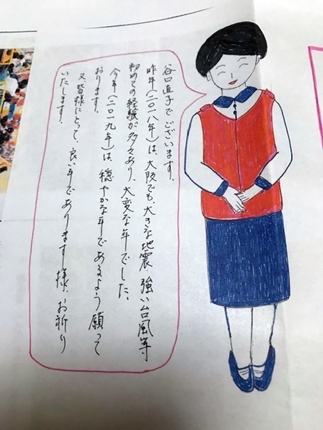 谷口直子でございます。
昨年(二〇一八年)は、大阪でも、大きな地震、強い台風等
初めての経験が多々あり、大変な年でした。
今年(二〇一九年)は、穏やかな年であるよう願って
おります。
又、皆様にとって、良い年であります様、お祈り
いたします。